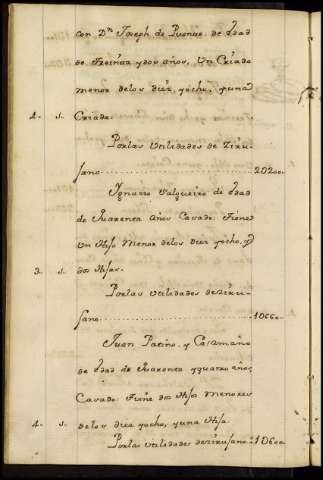 con Dn Joseph de Puonue de Edad
de Treinta y dos años, Un Criado
menor de los diez, y ocho, y una
4.. s. Criada.
Por las Utilidades de Ziru-
jano 20200..
Ygnacio Salgueiro de Edad
de Quarenta años Casado. Tiene
Un Hijo Menor de los diez y ocho, y
3.. s. dos Hijas.
Por las utilidades de ziru-
jano 1066..
Juan Patiño, y Caamaño
de Edad de Quarenta y quatro años
Casado Tiene dos Hijos Menores
4.. s. de los diez y ocho, y una Hija.
Por las utilidades de zirujano 1060..